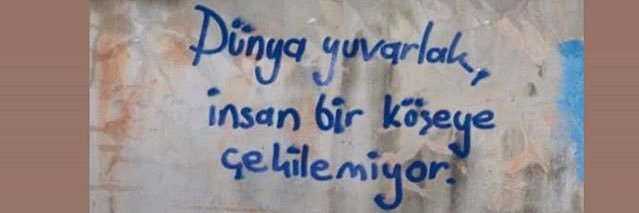 Dünya yuvarlak,
insan bir köşeye
çekilemiyor.